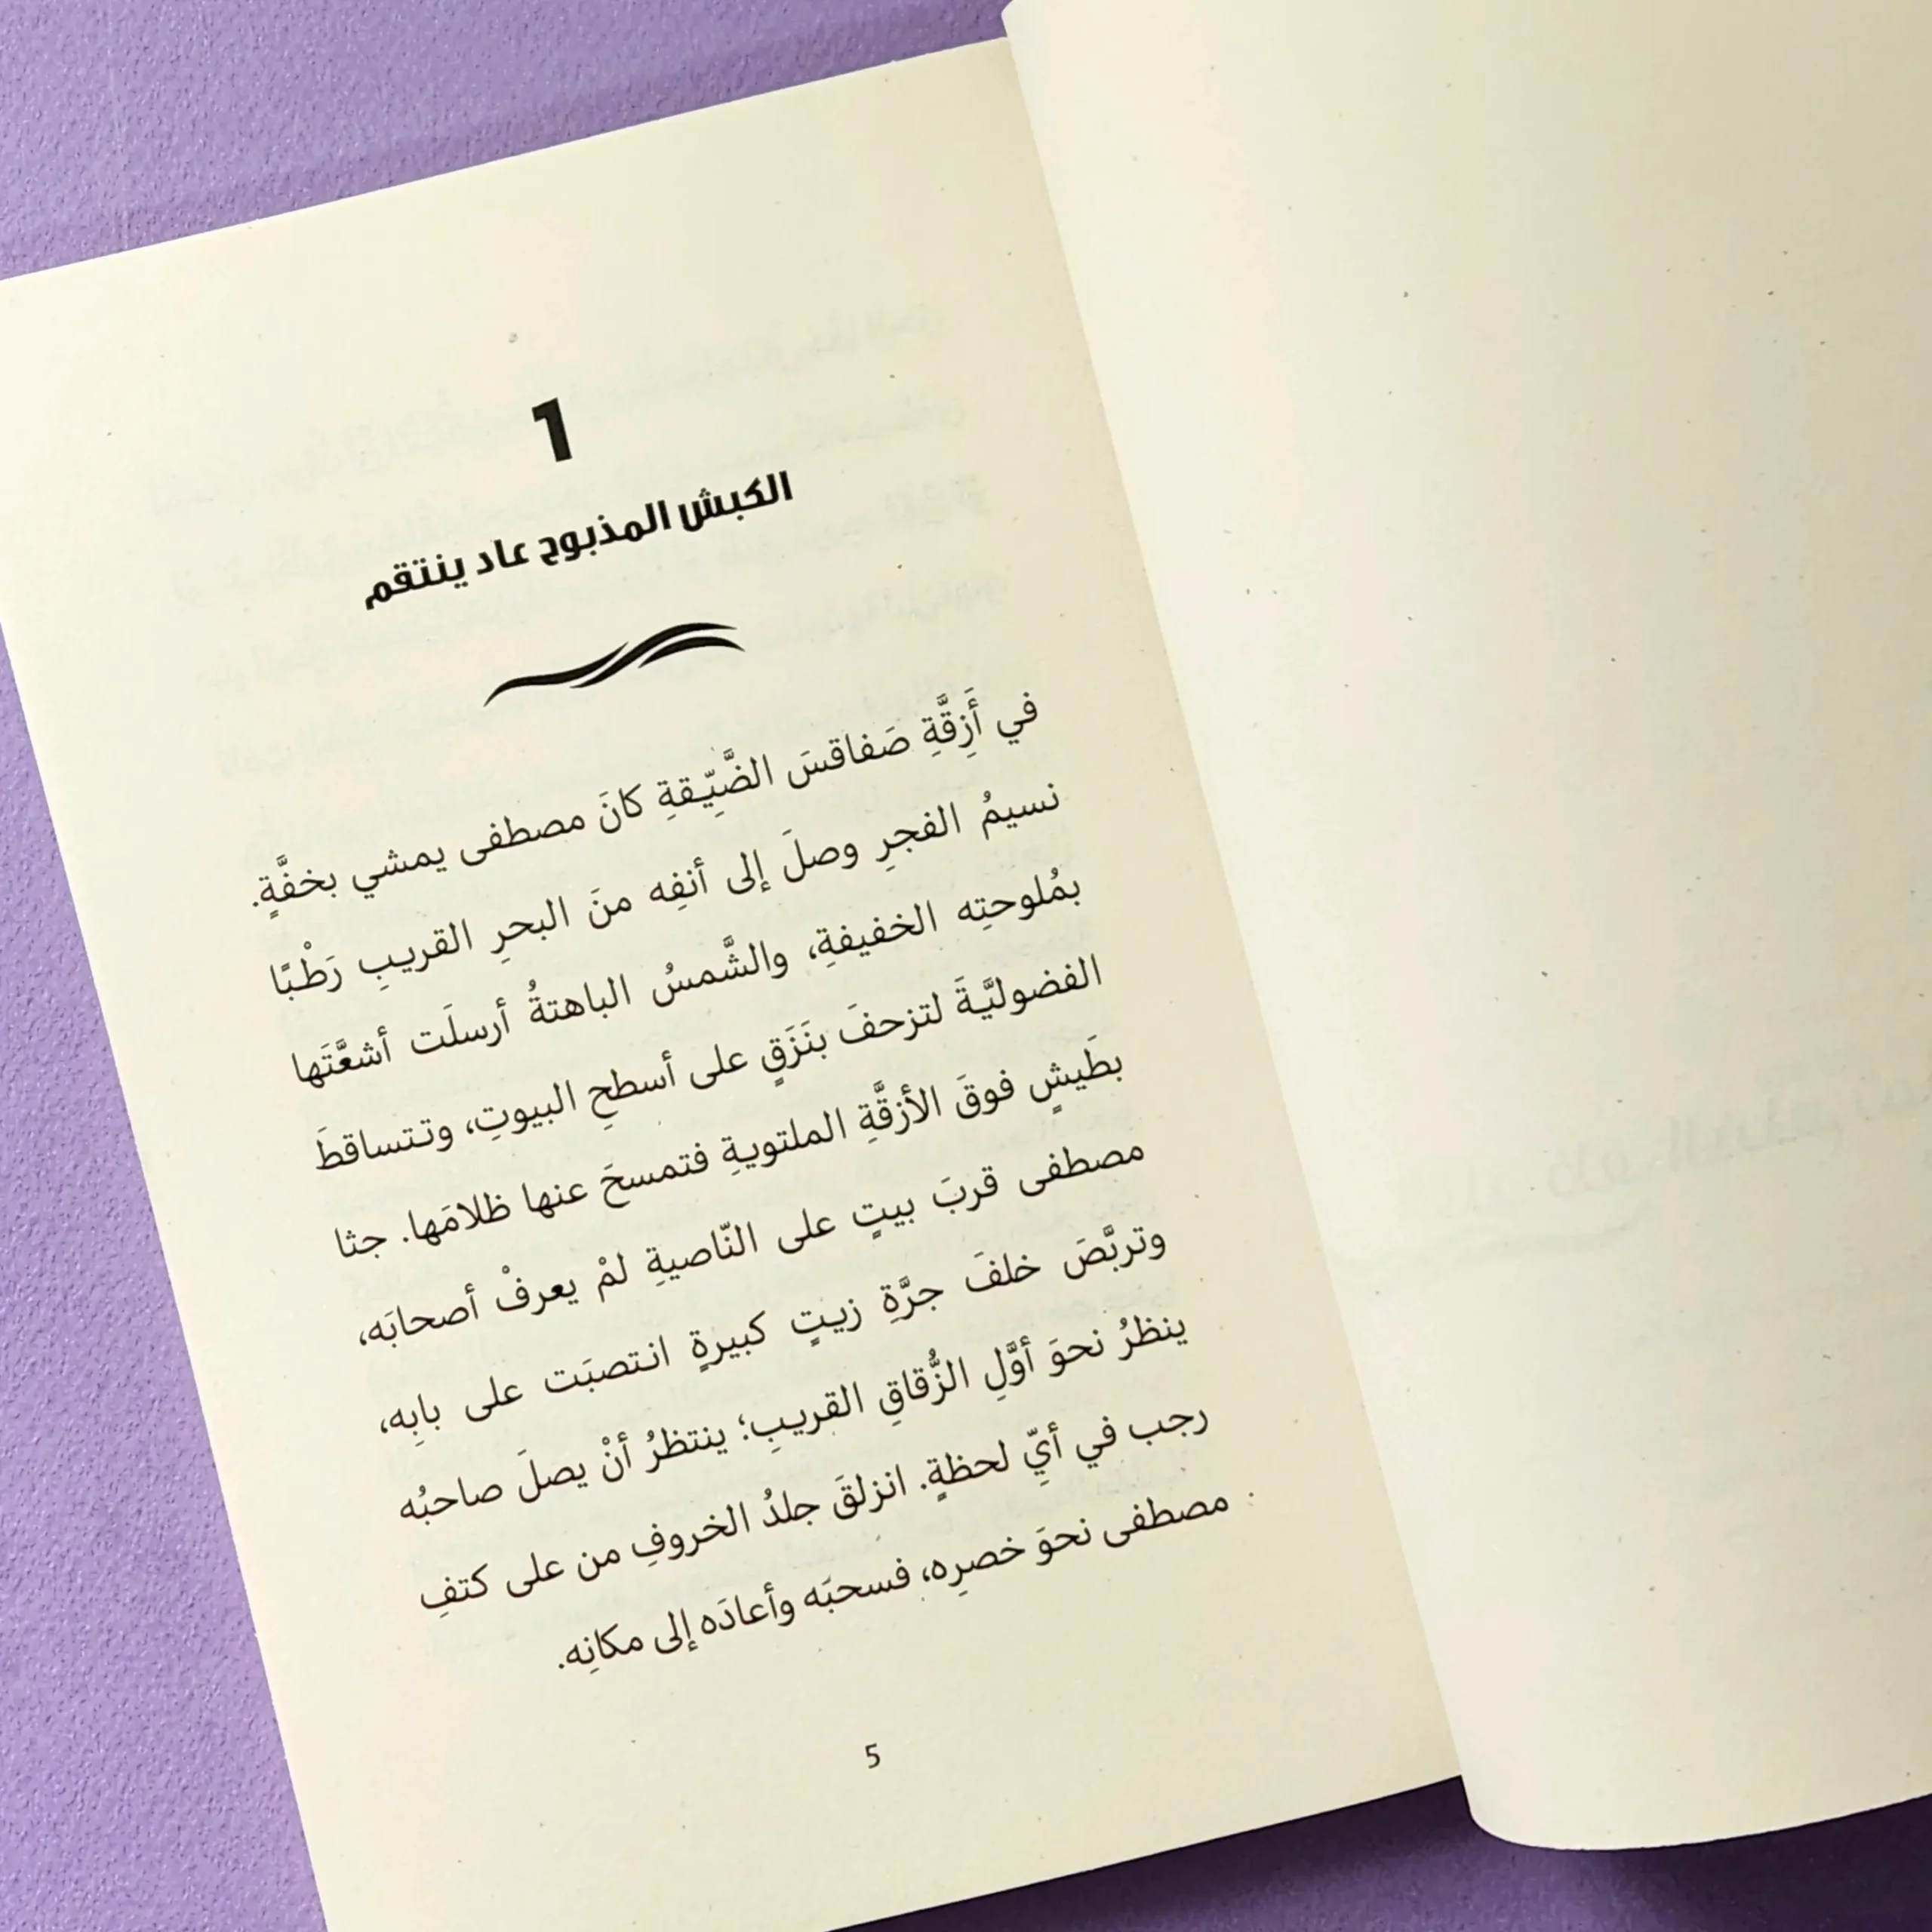 1
الكبش المذبوح عاد ينتقم
في أَزِقَّةِ صَفاقسَ الضَّيِّقةِ كانَ مصطفى يمشي بخفَّةٍ.
نسيمُ الفجرِ وصلَ إلى أنفِه منَ البحرِ القريبِ رَطْبًا
بمُلوحتِه الخفيفةِ، والشَّمسُ الباهتةُ أرسلَت أشعَّتَها
الفضوليَّةَ لتزحفَ بنَزَقٍ على أسطحِ البيوتِ، وتتساقطَ
بطَيشٍ فوقَ الأزقَّةِ الملتويةِ فتمسحَ عنها ظلامَها. جثا
مصطفى قربَ بيتٍ على النّاصيةِ لمْ يعرفْ أصحابَه،
وتربَّصَ خلفَ جرَّةِ زيتٍ كبيرةٍ انتصبَت على بابِه،
ينظرُ نحوَ أوَّلِ الزُّقاقِ القريبِ؛ ينتظرُ أنْ يصلَ صاحبُه
رجب في أيِّ لحظةٍ. انزلقَ جلدُ الخروفِ من على كتفِ
مصطفى نحوَ خصرِه، فسحبَه وأعادَه إلى مكانِه.
5